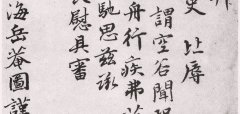 史 比辱
謂空谷聞
舟行疾弗
馳思茲承
慰具審
海岳菴圖謹